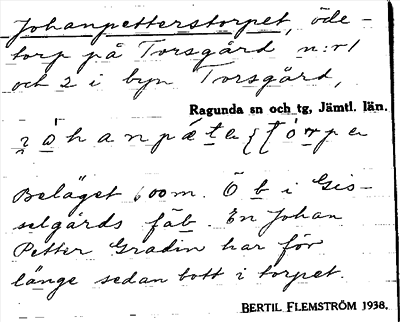 Johanpetterstorpet, öde-
torp på Torsgård n:r 1
och 2 i byn Torsgård,
Ragunda sn och tg, Jämtl. län.
Beläget 600 m. Ö b i Gis-
selgårds fäb. En Johan
Petter Gradin har för
länge sedan bott i torpet.
BERTIL FLEMSTRÖM 1938.